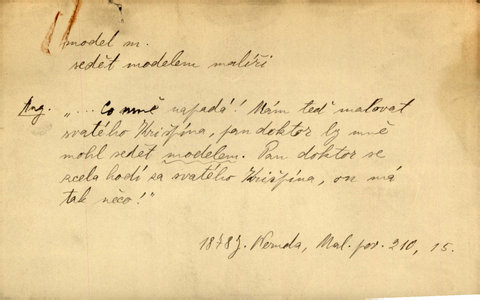 model m.
sedět modelem malíři
Ang. „... Co mně napadá! Mám teď malovat
svatého Krišpína, pan doktor by mně
mohl sedět modelem. Pan doktor se
zcela hodí za svatého Krišpína, on má
tak něco!"
1878 J. Neruda, Mal. pov. 210, 15.